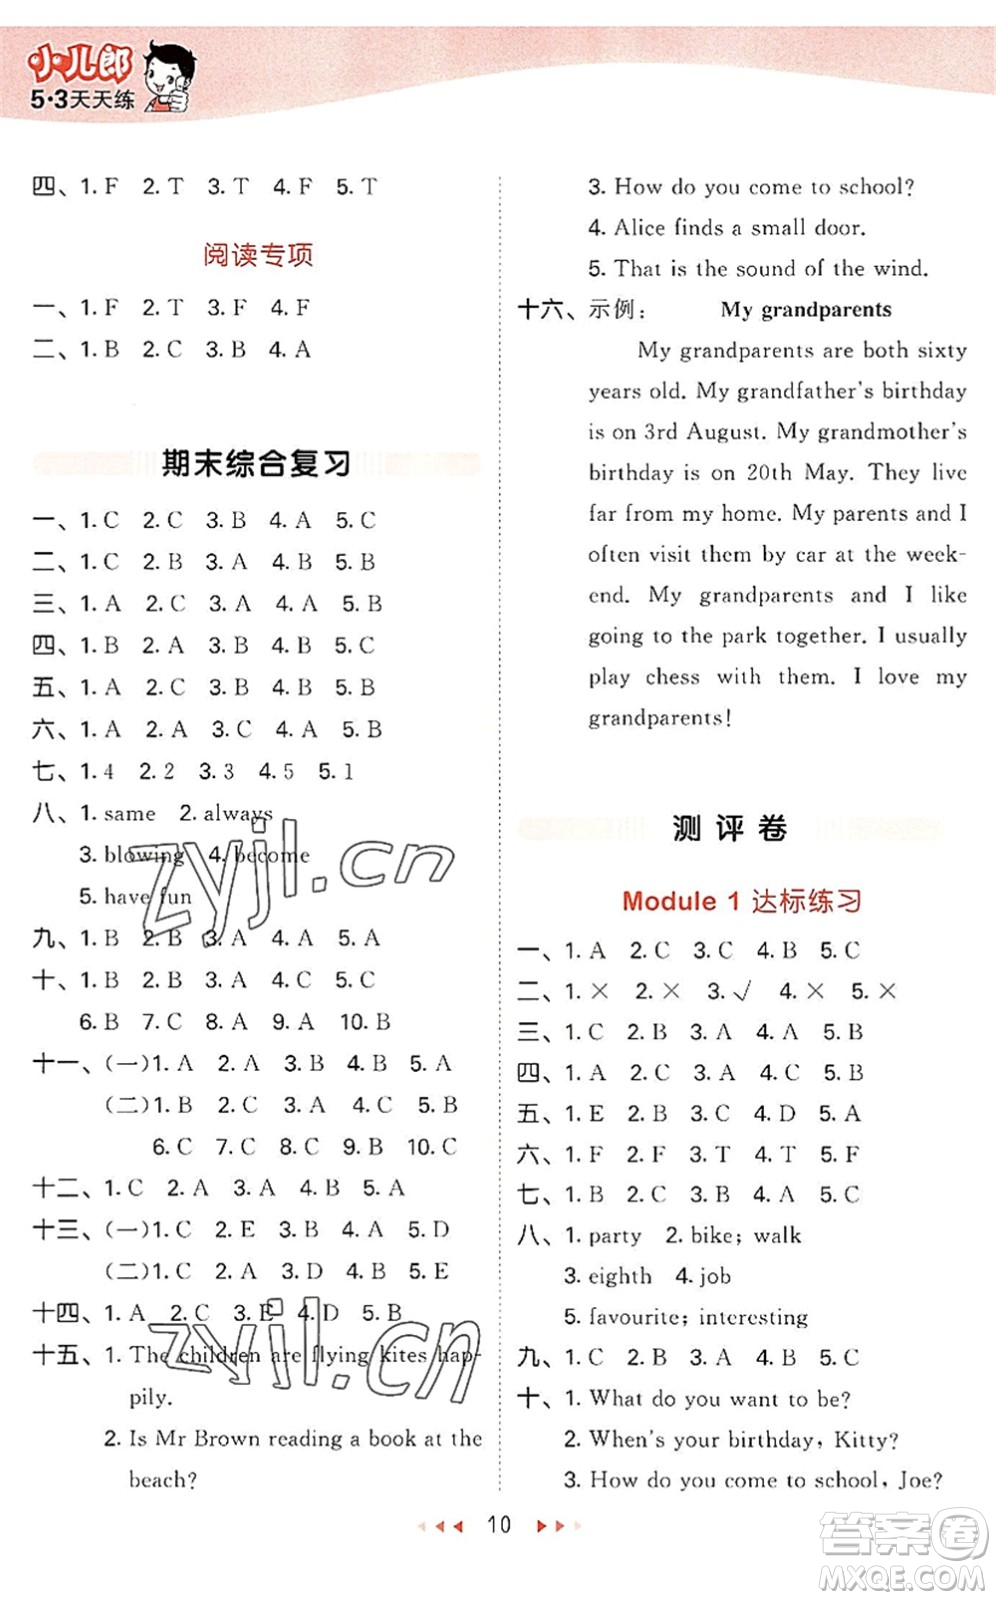 小儿郎
5·3天天练
四、1. F 2. T 3. T 4. F 5. T
阅读专项
一、1. F 2. T 3. F 4. F
二、1. B 2. C 3. B 4. A
期末综合复习
一、1. C 2. C 3. B 4. A 5. C
二、1. C 2. B 3. A 4. B 5. B
三、1. A 2. C 3. A 4. A 5. B
四、1. B 2. A 3. B 4. B 5. C
五、1. A 2. C 3. B 4. B 5. B
六、1. A 2. A 3. C 4. A 5. B
七、1. 4 2. 2 3. 3 4. 5 5. 1
八、1. same 2. always
3. blowing 4. become
5. have fun
九、1. B 2. B 3. A 4. A 5. A
十、1. B 2. B 3. A 4. C 5. C
6. B 7. C 8. A 9. A 10. B
十一、(一)1. A 2. A 3. B 4. B 5. A
(二)1. B 2. C 3. A 4. C 5. B
6. C 7. C 8. C 9. B 10. C
十二、1. C 2. A 3. A 4. B 5. A
十三、(一)1. C 2. E 3. B 4. A 5. D
(二)1. C 2. A 3. D 4. B 5. E
十四、1. A 2. C 3. E 4. D 5. B
十五、1. The children are flying kites hap-
pily.
2. Is Mr Brown reading a book at the
beach?
3. How do you come to school?
4. Alice finds a small door.
5. That is the sound of the wind.
十六、示例： My grandparents
My grandparents are both sixty
years old. My grandfather's birthday
is on 3rd August. My grandmother's
birthday is on 20th May. They live
far from my home. My parents and I
often visit them by car at the week-
end. My grandparents and I like
going to the park together. I usually
play chess with them. I love my
grandparents!
测评卷
Module 1 达标练习
一、1. A 2. C 3. C 4. B 5. C
二、1. × 2. × 3. √ 4. × 5. ×
三、1. C 2. B 3. A 4. A 5. B
四、1. A 2. C 3. A 4. C 5. B
五、1. E 2. B 3. C 4. D 5. A
六、1. F 2. F 3. T 4. T 5. F
七、1. B 2. C 3. B 4. A 5. C
八、1. party 2. bike; walk
3. eighth 4. job
5. favourite; interesting
九、1. C 2. B 3. A 4. B 5. C
十、1. What do you want to be?
2. When's your birthday, Kitty?
3. How do you come to school, Joe?
10
zyjl.cn
zyjl.cn
答案圈
MXQE.COM